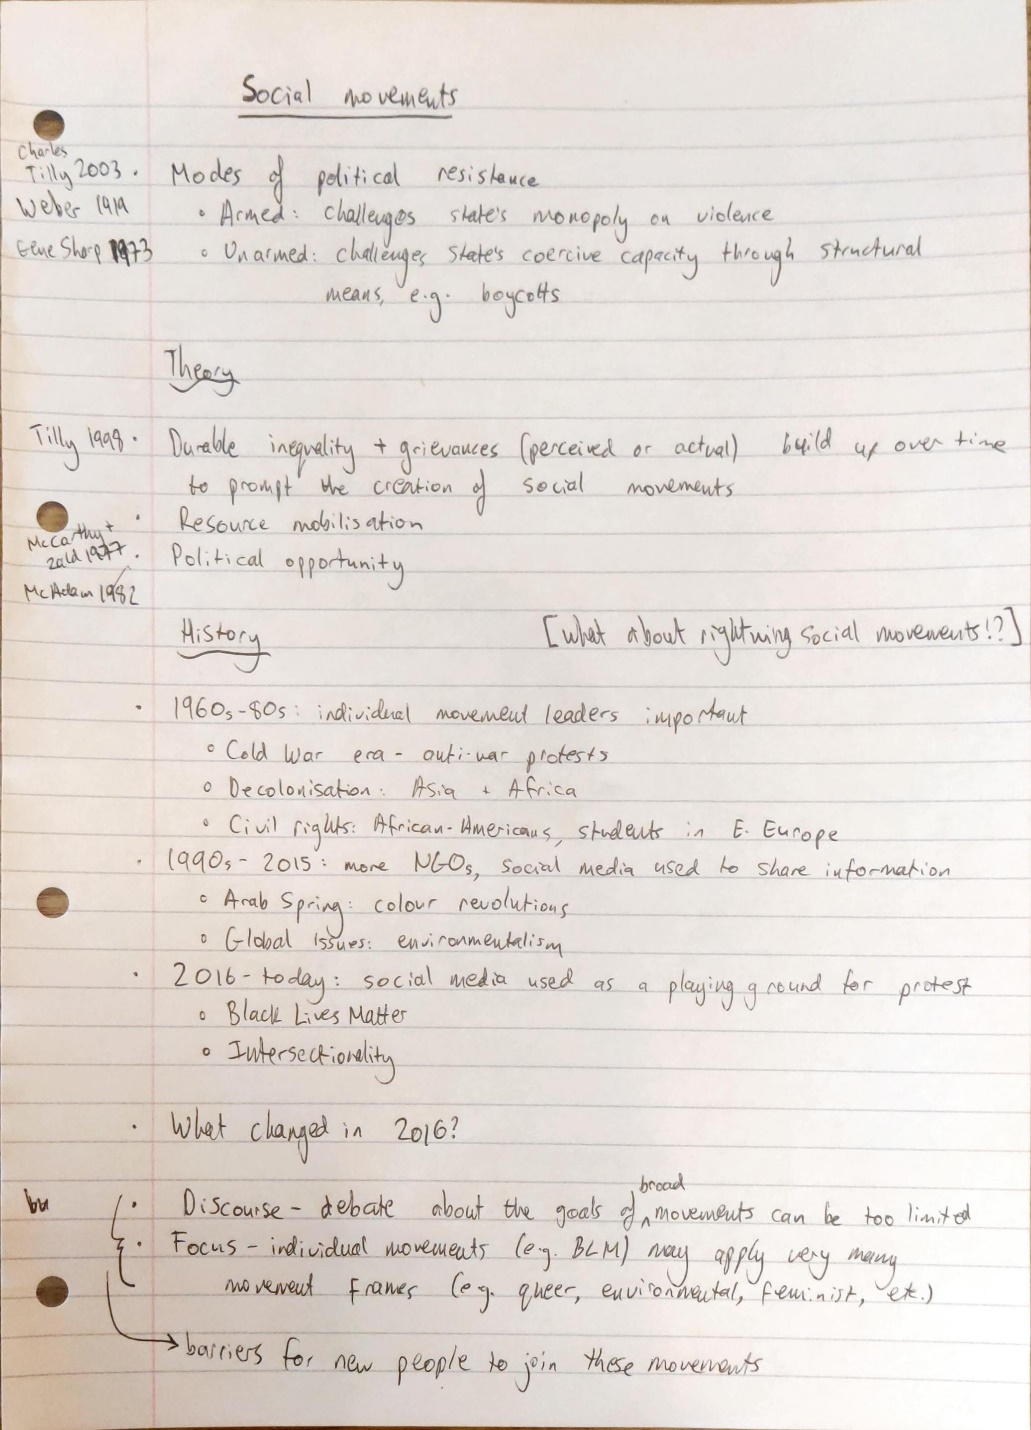 Social movements
Charles
Tilly 2003 · Modes of political resistance
Weber 1919 ◦ Armed: challenges state's monopoly on violence
Gene Sharp 1973 ◦ Unarmed: challenges state's coercive capacity through structural
means, e.g. boycotts
Theory
Tilly 1998 · Durable inequality + grievances (perceived or actual) build up over time
to prompt the creation of social movements
· Resource mobilisation
McCarthy +
Zald 1977 · Political opportunity
McAdam 1982
History [What about rightwing social movements!?]
· 1960s-80s: individual movement leaders important
◦ Cold War era - anti-war protests
◦ Decolonisation: Asia + Africa
◦ Civil rights: African-Americans, students in E. Europe
· 1990s - 2015: more NGOs, social media used to share information
◦ Arab Spring: colour revolutions
◦ Global issues: environmentalism
· 2016 - today: social media used as a playing ground for protest
◦ Black Lives Matter
◦ Intersectionality
· What changed in 2016?
broad
· Discourse - debate about the goals of ^ movements can be too limited
· Focus - individual movements (e.g. BLM) may apply very many
movement frames (e.g. queer, environmental, feminist, etc.)
→ barriers for new people to join these movements